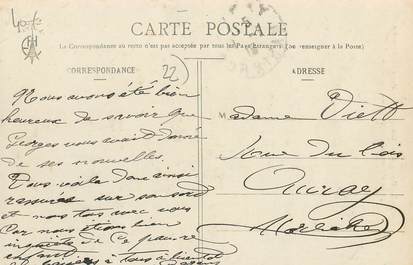 CARTE POSTALE
La Correspondance au recto n'est pas acceptée par tous les Pays Étrangers (Se renseigner à la Poste)
CORRESPONDANCE
ADRESSE
22
Nous avons été bien
heureux de savoir que
Georges vous avait donné
de ses nouvelles.
Vous voilà donc ainsi
rassurés sur son sort
et nous tous avec vous
Car nous étions bien
inquiets de ce pauvre
enfant
à tous à bientôt
Madame Viett
Rue du lois
Auray
Morbihan